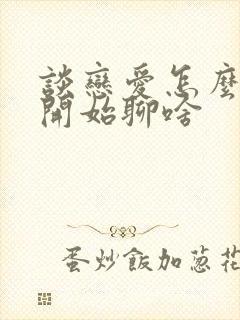 談戀愛怎麼
開始聊啥
蛋炒飯加蔥花